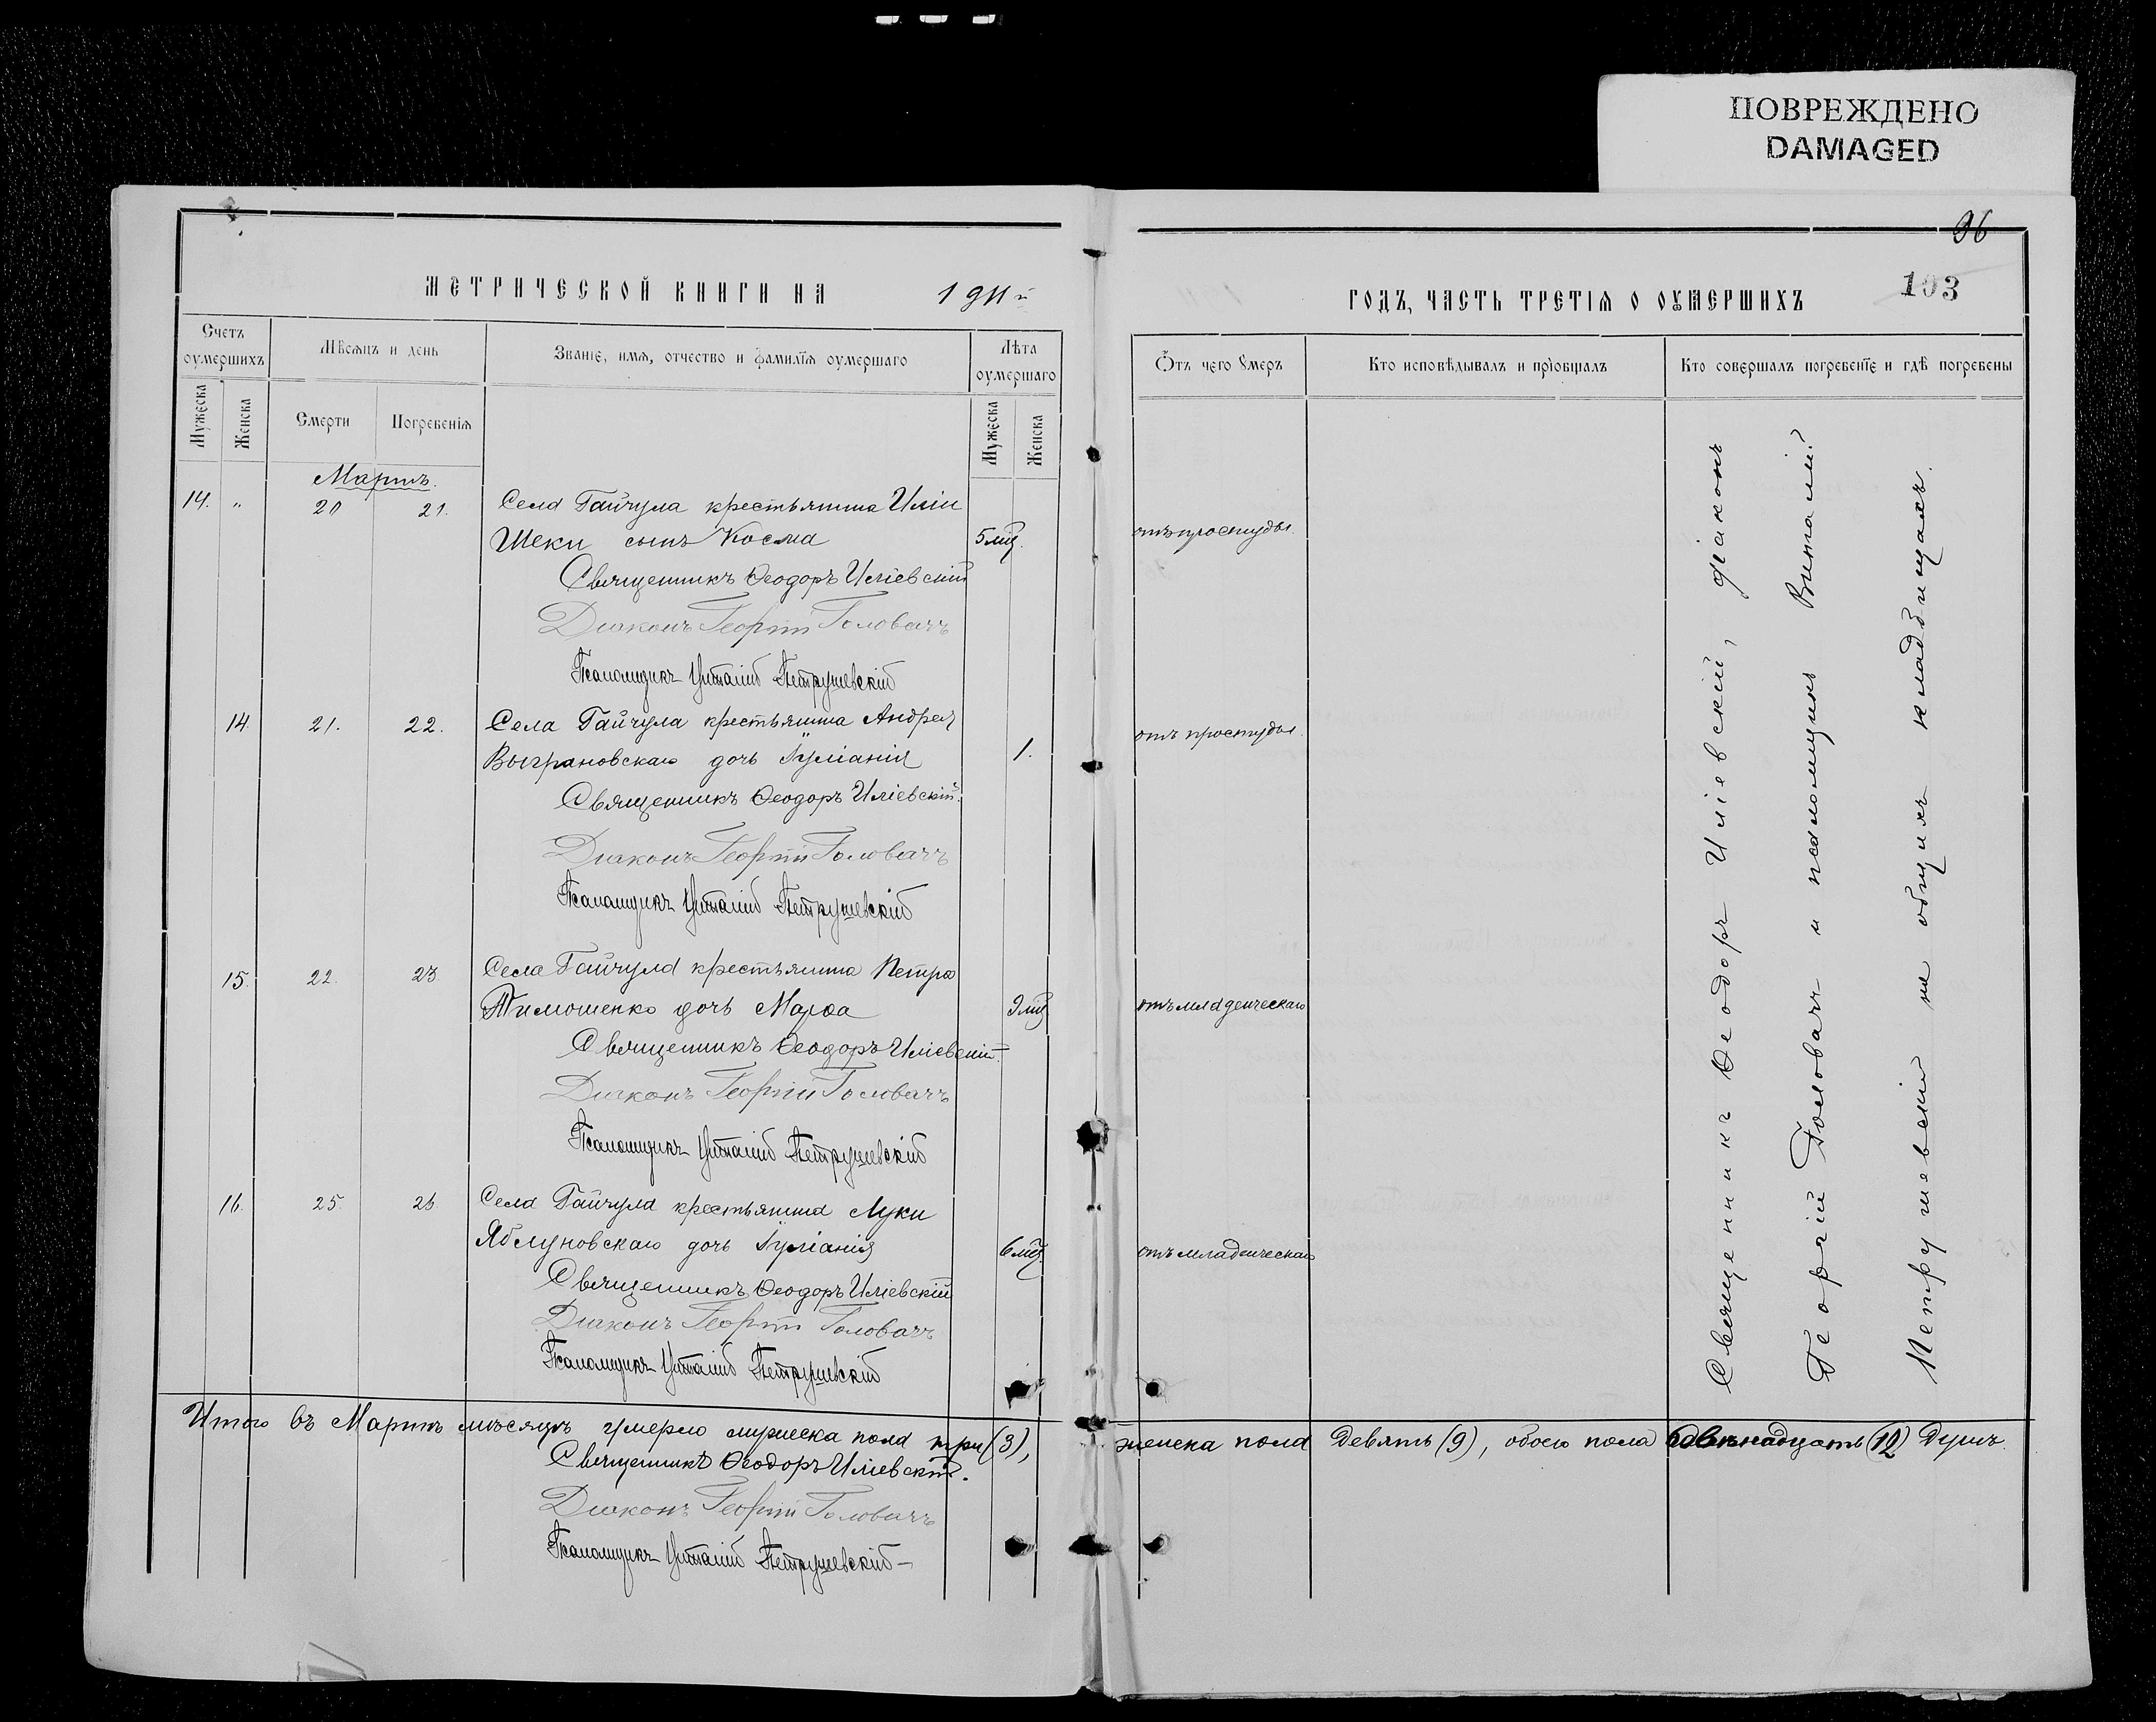 ПОВРЕЖДЕНО
DAMAGED
96
103
МЕТРИЧЕСКОЙ КНИГИ НА 1911й ГОДЪ, ЧАСТЬ ТРЕТІЯ О ОУМЕРШИХЪ
Счетъ оумершихъ
Мужеска
Женска
Мѣсяцъ и день
Смерти
Погребенія
Званіе, имя, отчество и фамилія оумершаго
Лѣта оумершаго
Мужеска
Женска
Ѿтъ чего умеръ
Кто исповѣдывалъ и пріобщалъ
Кто совершалъ погребеніе и гдѣ погребены
Мартъ.
14. " 20 21. Села Гайчула крестьянина Иліи
Шеки сынъ Косма 5 мѣс. отъ простуды.
Священникъ Ѳеодоръ Иліевскій
Діаконъ Георгій Головачъ
Псаломщикъ Виталій Петрушевскій
14. 21. 22. Села Гайчула крестьянина Андрея
Выграновскаго дочь Іуліанія 1. отъ простуды.
Священникъ Ѳеодоръ Иліевскій.
Діаконъ Георгій Головачъ
Псаломщикъ Виталій Петрушевскій
15. 22. 23. Села Гайчула крестьянина Петра
Тимошенко дочь Марѳа 9 мѣс. отъ младенческаго
Священникъ Ѳеодоръ Иліевскій.
Діаконъ Георгій Головачъ
Псаломщикъ Виталій Петрушевскій
16. 25. 26. Села Гайчула крестьянина Луки
Яблуновскаго дочь Іуліанія 6 мѣс. отъ младенческаго
Священникъ Ѳеодоръ Иліевскій
Діаконъ Георгій Головачъ
Псаломщикъ Виталій Петрушевскій
Священникъ Ѳеодоръ Иліевскій, діаконъ
Георгій Головачъ и псаломщикъ Виталій
Петрушевскій на общихъ кладбищахъ.
Итого въ Мартѣ мѣсяцѣ умерло мужеска пола три (3), женска пола девять (9), обоего пола двѣнадцать (12) душъ.
Священникъ Ѳеодоръ Иліевскій.
Діаконъ Георгій Головачъ
Псаломщикъ Виталій Петрушевскій